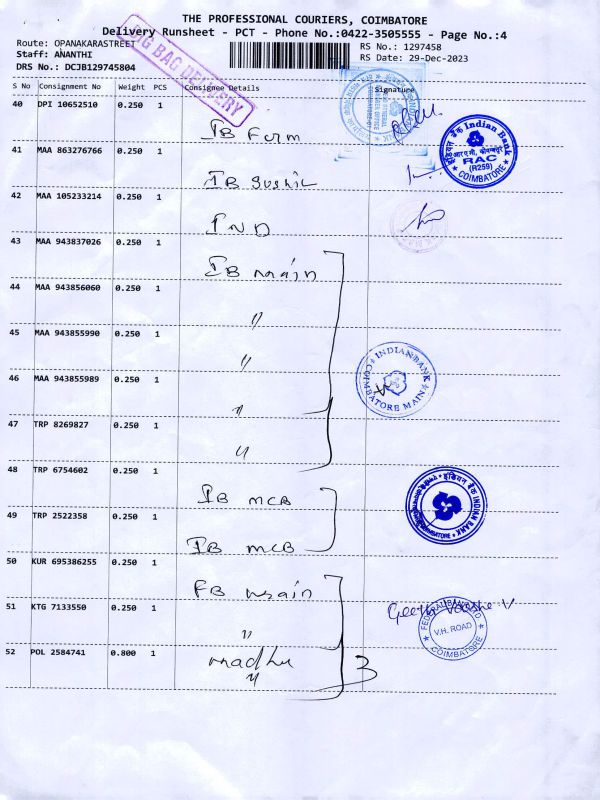 THE PROFESSIONAL COURIERS, COIMBATORE
Delivery Runsheet - PCT - Phone No.:0422-3505555 - Page No.:4
Route: OPANAKARASTREET
RS No.: 1297458
Staff: ANANTHI
RS Date: 29-Dec-2023
DRS No.: DCJB129745804
BIG BAG DELIVERY
S No Consignment No Weight PCS Consignee Details Signature
40 DPI 10652510 0.250 1
IB Form
41 MAA 863276766 0.250 1
IB Sushil
इंडियन बैंक Indian Bank
RAC
(R259)
COIMBATORE
42 MAA 105233214 0.250 1
IND
43 MAA 943837026 0.250 1
IB main
44 MAA 943856060 0.250 1
"
45 MAA 943855990 0.250 1
"
INDIAN BANK
COIMBATORE MAIN
46 MAA 943855989 0.250 1
"
47 TRP 8269827 0.250 1
"
48 TRP 6754602 0.250 1
IB MCB
इंडियन बैंक INDIAN BANK
COIMBATORE
49 TRP 2522358 0.250 1
IB MCB
50 KUR 695386255 0.250 1
FB main
51 KTG 7133550 0.250 1
"
FEDERAL BANK LTD
V.H. ROAD
COIMBATORE
52 POL 2584741 0.800 1
madhu
"
3